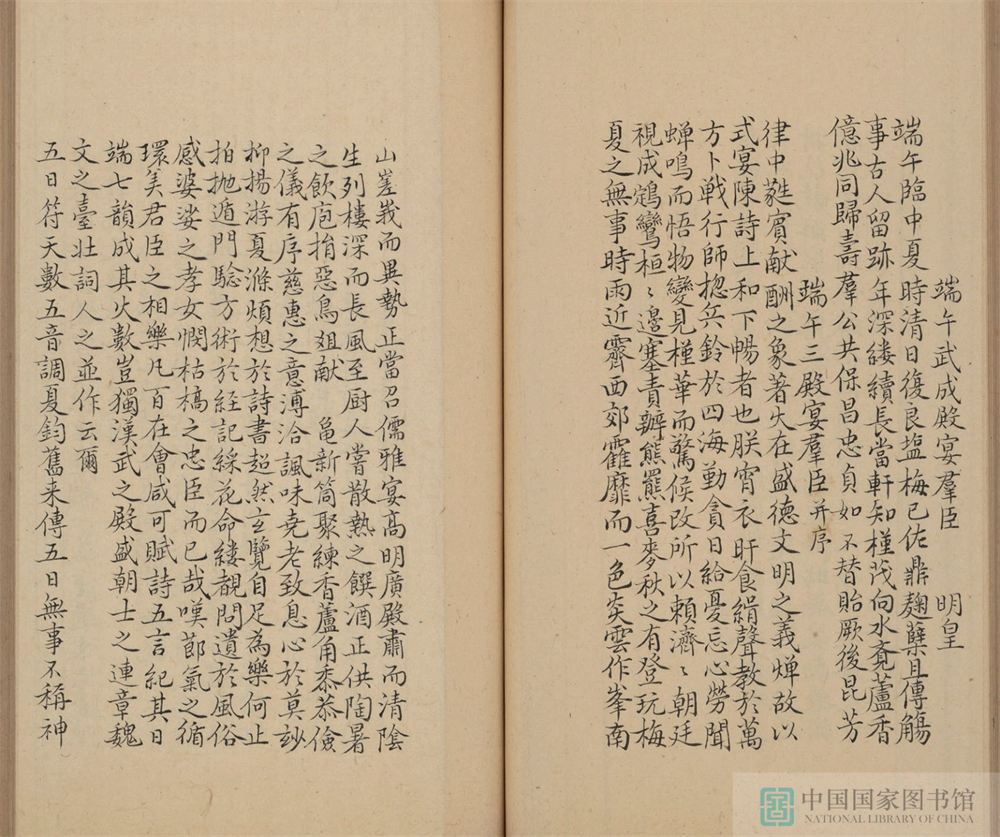 端午武成殿宴羣臣　明皇
端午臨中夏時清日復良塩梅已佐鼎麹蘖且傳觴
事古人留跡年深縷續長當軒知槿茂向水覔蘆香
億兆同歸壽羣公共保昌忠貞如不替貽厥後昆芳
端午三殿宴羣臣并序
律中蕤賓献酬之象著火在盛德文明之義燀故以
式宴陳詩上和下暢者也朕宵衣旰食緝聲教於萬
方卜戦行師揔兵鈴於四海勤貪日給憂忘心勞聞
蝉鳴而悟物變見槿華而驚候改所以頼濟〻朝廷
視成鵷鸞桓〻邊塞責辦熊羆喜麥秋之有登玩梅
夏之無事時雨近霽西郊靃靡而一色炎雲作峯南
山嵳峩而異勢正當召儒雅宴高明廣殿肅而清隂
生列樓深而長風至厨人嘗散熱之饌酒正供陶暑
之飲庖捐惡鳥俎献龜新筒聚練香蘆角黍恭儉
之儀有序慈惠之意溥洽諷味尭老致息心於莫玅
抑揚游夏滌煩想於詩書超然玄覽自足為樂何止
拍抛遁門驗方術於経記綵花命縷覩問遺於風俗
感婆娑之孝女憫枯槁之忠臣而已哉嘆莭氣之循
環美君臣之相樂凡百在會咸可賦詩五言紀其日
端七韻成其火數豈獨漢武之殿盛朝士之連章魏
文之臺壯詞人之並作云爾
五日符天數五音調夏鈞舊来傳五日無事不稱神
中国国家图书馆
NATIONAL LIBRARY OF CHINA